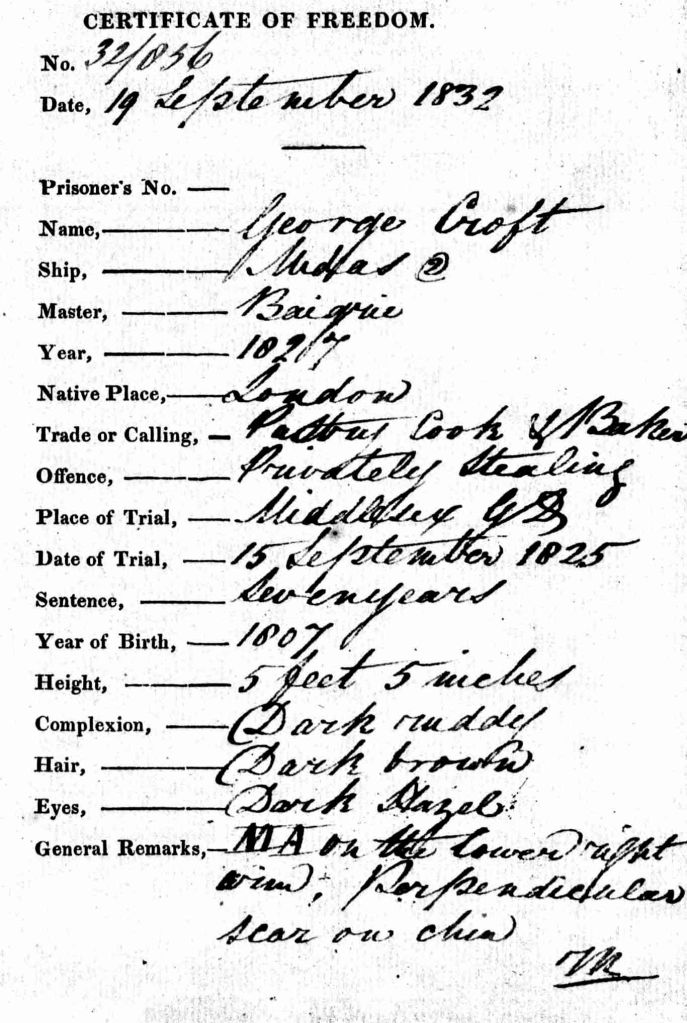 CERTIFICATE OF FREEDOM.
No. 32/856
Date, 19 September 1832
Prisoner's No. —
Name, George Croft
Ship, Midas (2)
Master, Baigrie
Year, 1827
Native Place, London
Trade or Calling, Pastry Cook & Baker
Offence, Privately Stealing
Place of Trial, Middlesex G D
Date of Trial, 15 September 1825
Sentence, Seven years
Year of Birth, 1807
Height, 5 feet 5 inches
Complexion, Dark ruddy
Hair, Dark brown
Eyes, Dark Hazel
General Remarks, MA on the lower right
arm, Perpendicular
scar on chin